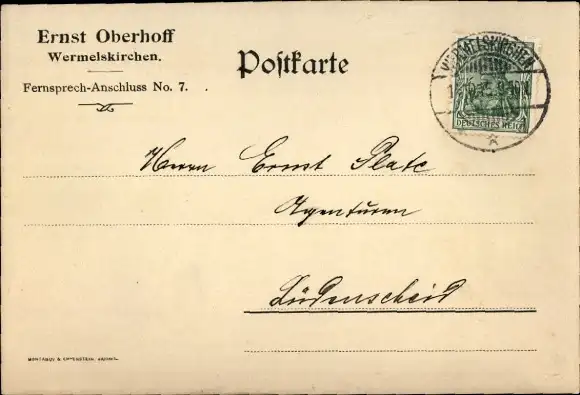 Ernst Oberhoff
Wermelskirchen.
Fernsprech-Anschluss No. 7.
Postkarte
WERMELSKIRCHEN
DEUTSCHES REICH
Herrn Ernst Plate
Agenturen
Lüdenscheid